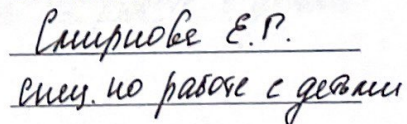 Смирнова Е.Г.
спец. по работе с детьми